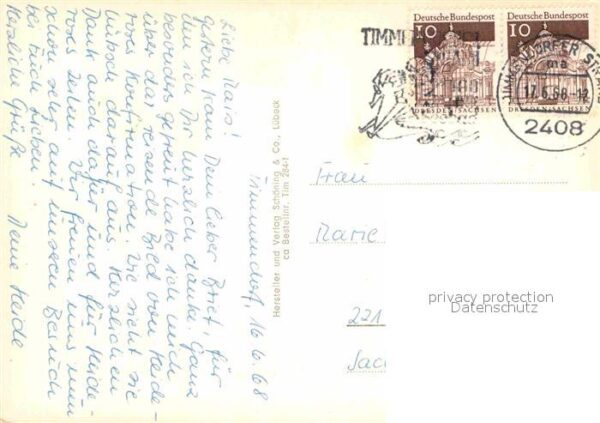 Timmendorf, 16.6.68
Liebe Marie!
Gestern kam Dein lieber Brief, für
den ich Dir herzlich danke. Ganz
besonders gefreut habe ich mich
über das reizende Bild von Heide-
roses Konfirmation. Wie sieht sie
hübsch darauf aus. Herzlichen
Dank auch dafür und für Heide-
roses Zeilen. Wir freuen uns nun
schon sehr auf unseren Besuch
bei Euch Lieben.
Herzliche Grüße Deine Heide.
Hersteller und Verlag Schöning & Co., Lübeck
ca Bestellnr. Tim 284-1
Deutsche Bundespost
10
DRESDEN/SACHSEN
Deutsche Bundespost
10
DRESDEN/SACHSEN
TIMMENDORFER STRAND
ma
17.6.68-12
2408
Frau
Marie
221
Sac
privacy protection
Datenschutz